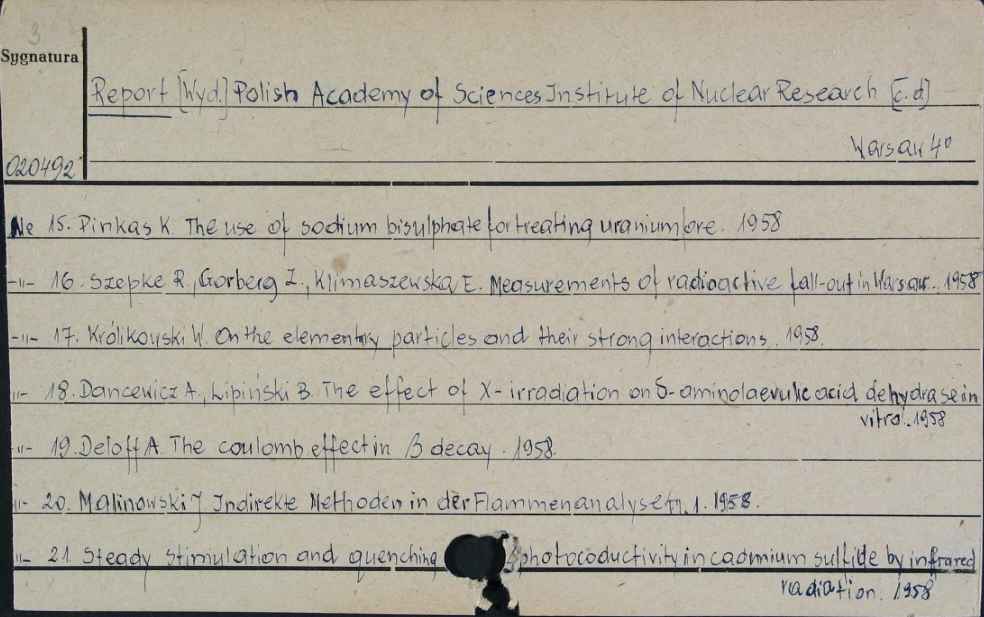 3
Sygnatura
Report [Wyd.] Polish Academy of Sciences Institute of Nuclear Research [c.d]
Warsaw 4°
020492
Ne 15. Pinkas K. The use of sodium bisulphate for treating uranium ore. 1958
-"- 16. Szepke R., Gorberg Z., Klimaszewska E. Measurements of radioactive fall-out in Warsaw. 1958
-"- 17. Królikowski W. On the elementry particles and their strong interactions. 1958.
"- 18. Dancewicz A., Lipiński B. The effect of X-irradiation on δ-aminolaevulic acid dehydrase in
vitro. 1958
-"- 19. Deloff A. The coulomb effect in β decay. 1958.
"- 20. Malinowski J. Indirekte Methoden in der Flammenanalyse 1. 1958.
"- 21. Steady stimulation and quenching photocoductivity in cadmium sulfide by infrared
radiation. 1958